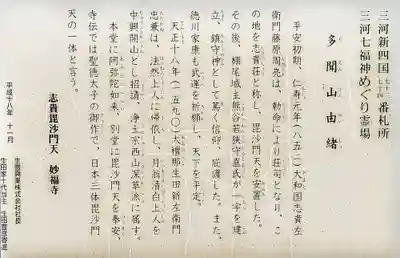 三河新四国 番札所
三河七福神めぐり霊場
多聞山由緒
平安初期、仁寿元年(八五一)大和国志貴左
衛門藤原周亮は、勅命により荘司となり、こ
の地を志貴荘と称し、毘沙門天を安置した。
その後、棚尾城主熊谷若狭守直氏が一宇を建
立、鎮守神として篤く信仰、庇護した。また、
徳川家康も武運を祈願し、天下を平定。
天正十八年(一五九〇)大檀那生田新左衛門
忠兼は、法然上人に帰依し、月翁清白上人を
中興開山とし招請、浄土宗西山深草派に属す。
本堂に阿弥陀如来、別堂に毘沙門天を奉安、
寺伝では聖徳太子の御作で、日本三体毘沙門
天の一体と言う。
志貴毘沙門天 妙福寺
平成十八年 十一月
生田興業株式会社社長
生田家十代当主